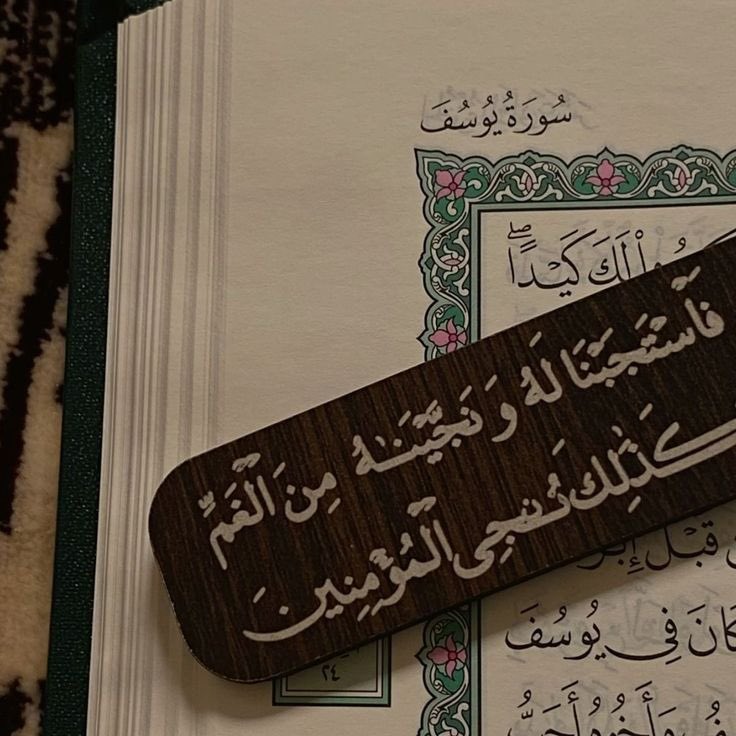 سُورَةُ يُوسُفَ
لَكَ كَيْدًا ۖ
فَاسْتَجَبْنَا لَهُ وَ نَجَّيْنَاهُ مِنَ الْغَمِّ
كَذَٰلِكَ نُنجِى الْمُؤْمِنِينَ
قَبْلُ
كَانَ فِي يُوسُفَ
وَأَخُوهُ أَحَبُّ
٢٤